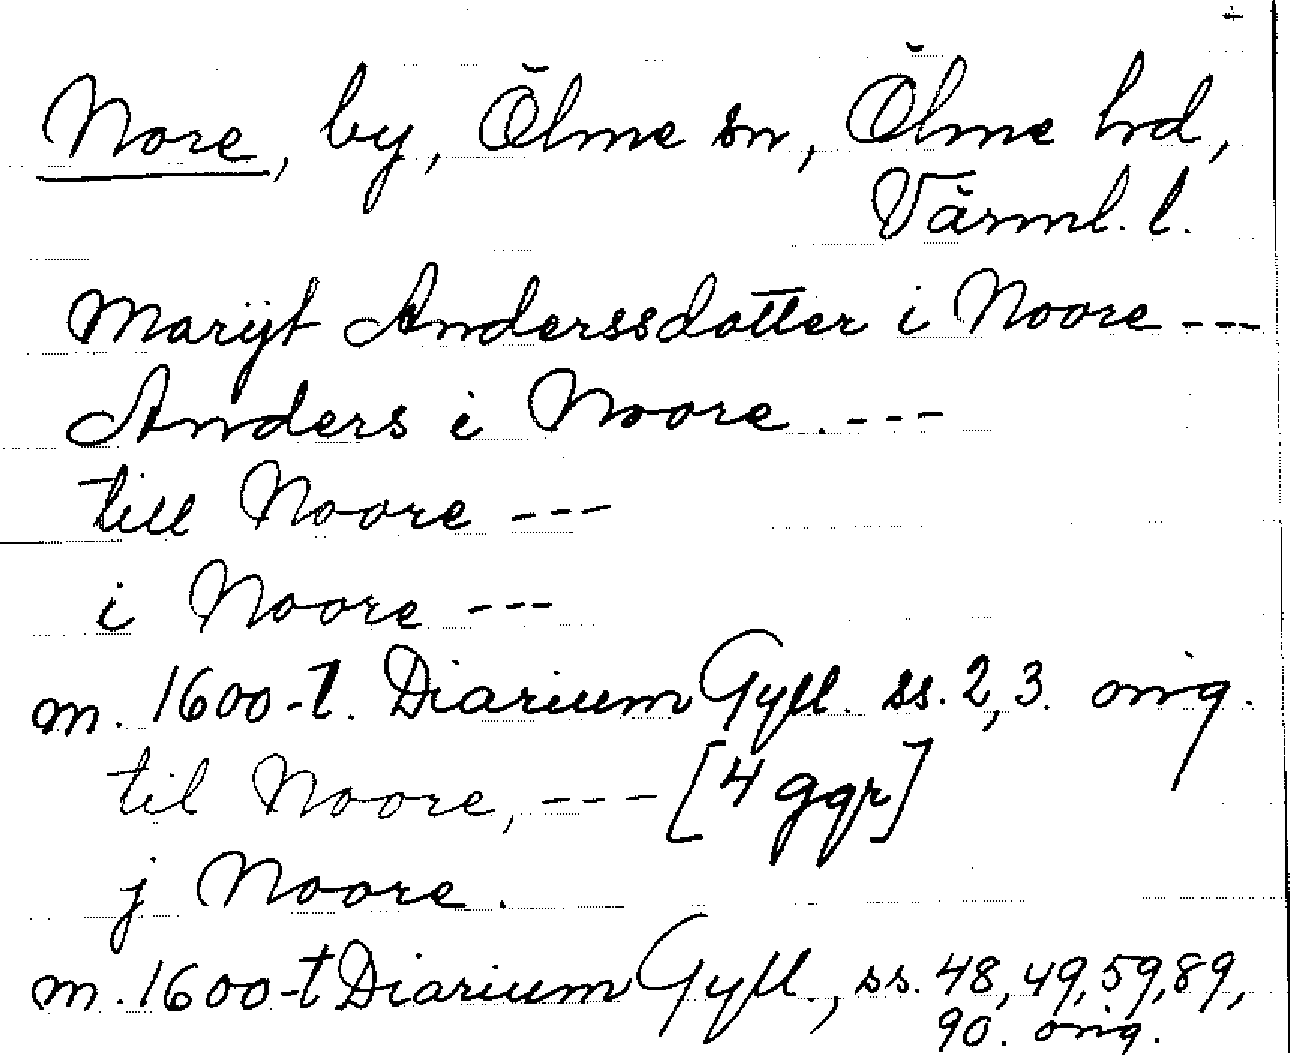 Nore, by, Ölme sn, Ölme hd,
Värml. l.
Marijt Anderssdotter i Noore ---
Anders i Noore. ---
till Noore ---
i Noore ---
m. 1600-t. Diarium Gyll. ss. 2, 3. orig.
til Noore, --- [4 ggr]
j Noore.
m. 1600-t Diarium Gyll., ss. 48, 49, 59, 89,
90. orig.